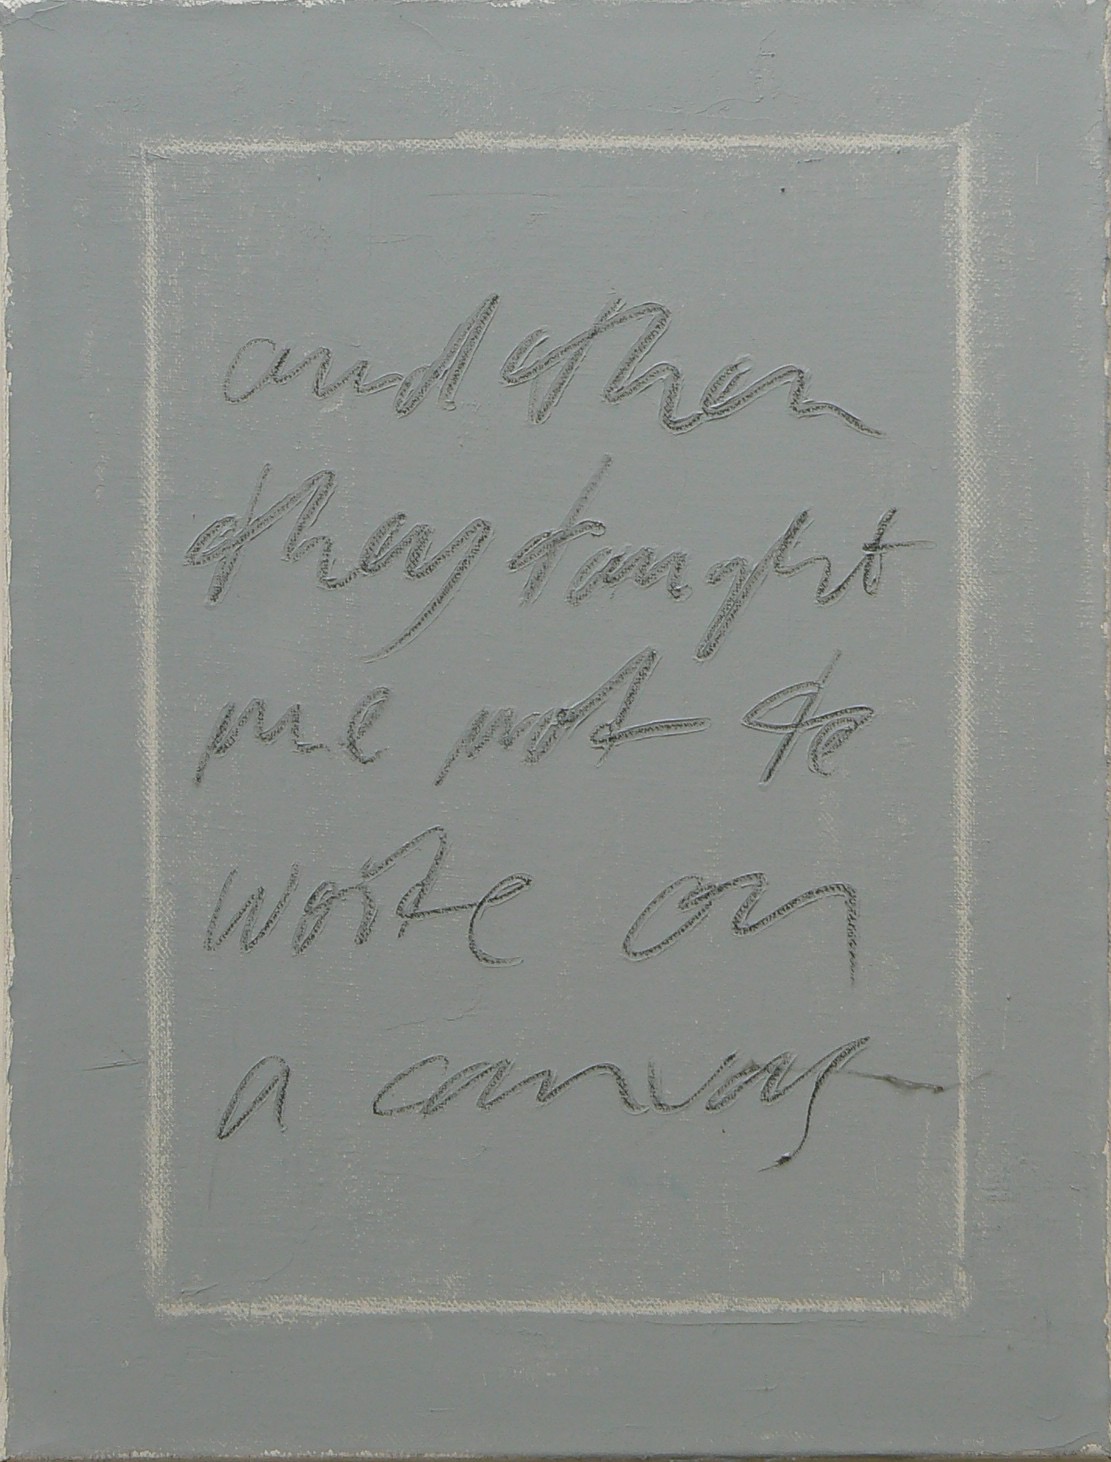 and then
they taught
me not to
write on
a canvas